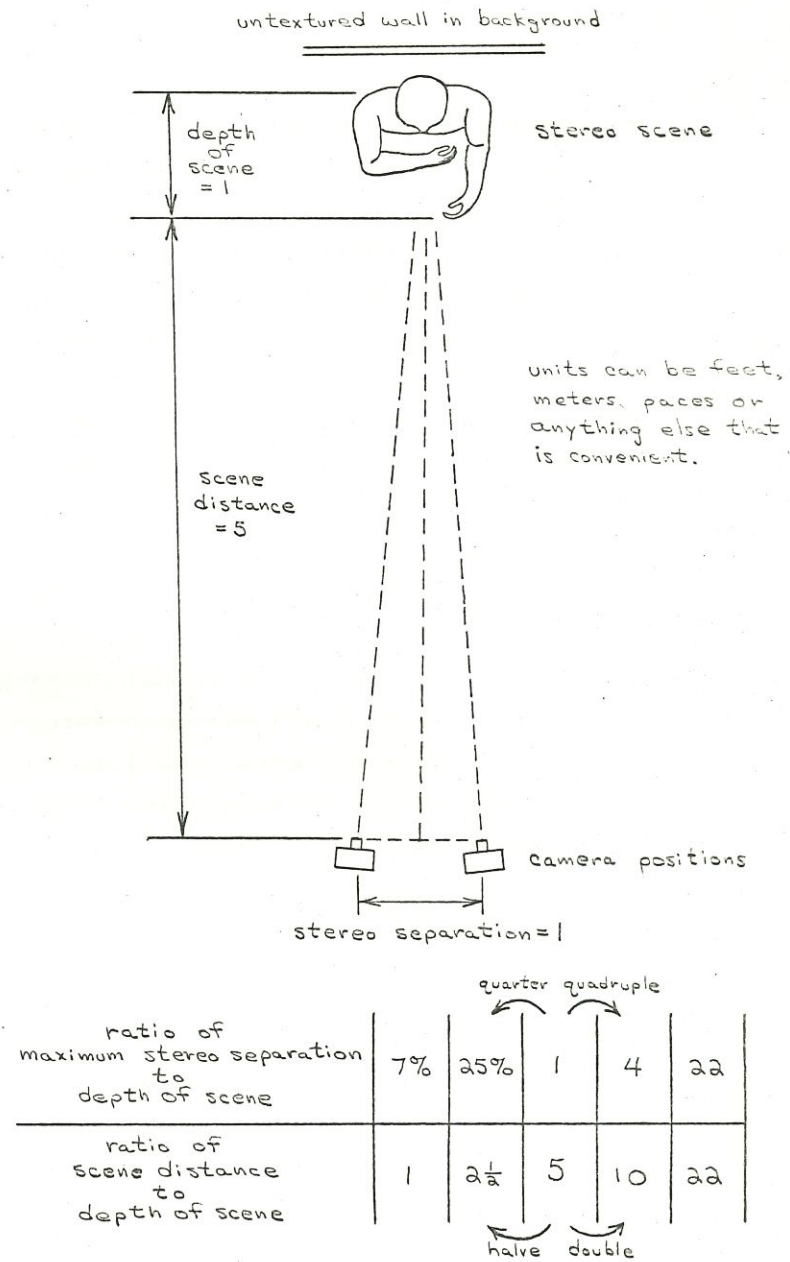 untextured wall in background
depth
of
scene
= 1
stereo scene
units can be feet,
meters, paces or
anything else that
is convenient.
scene
distance
= 5
camera positions
stereo separation = 1
quarter quadruple
ratio of
maximum stereo separation
to
depth of scene
7% 25% 1 4 22
ratio of
scene distance
to
depth of scene
1 2½ 5 10 22
halve double